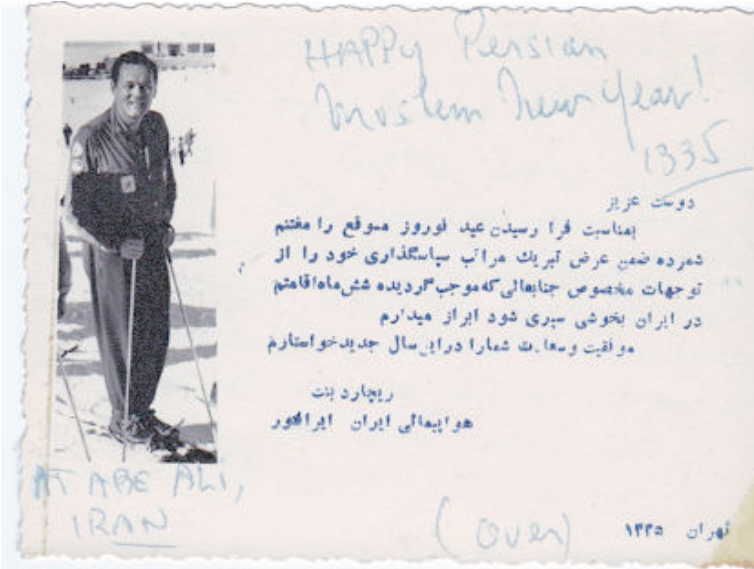 HAPPY Persian
Moslem New Year!
1335
دوست عزیز
بمناسبت فرا رسیدن عید نوروز موقع را مغتنم
شمرده ضمن عرض تبریك مراتب سپاسگذاری خود را از
توجهات مخصوص جنابعالی که موجب گردیده شش ماه اقامتم
در ایران بخوشی سپری شود ابراز میدارم
موفقیت و سعادت شمارا در این سال جدید خواستارم
ریچارد بنت
هواپیمائی ایران ایرانتور
AT ABE ALI,
IRAN
(OVER)
تهران ۱۳۳۵